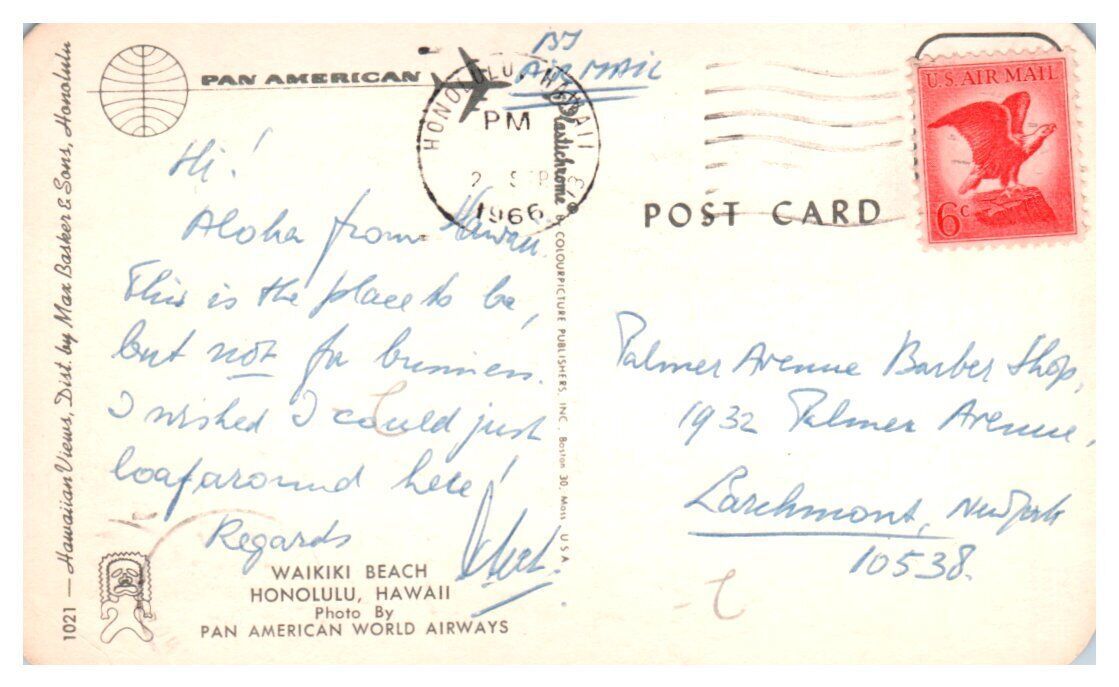 PAN AMERICAN
BY
AIR MAIL
HONOLULU, HAWAII
PM
2 SEP
1966
U.S. AIR MAIL
6c
POST CARD
Hi!
Aloha from Hawaii.
This is the place to be,
but not for business.
I wished I could just
loaf around here!
Regards
Palmer Avenue Barber Shop,
1932 Palmer Avenue,
Larchmont, New York
10538.
WAIKIKI BEACH
HONOLULU, HAWAII
Photo By
PAN AMERICAN WORLD AIRWAYS
1021 — Hawaiian Views, Dist. by Max Basker & Sons, Honolulu
Plastichrome ® COLOURPICTURE PUBLISHERS, INC., Boston 30, Mass. U.S.A.